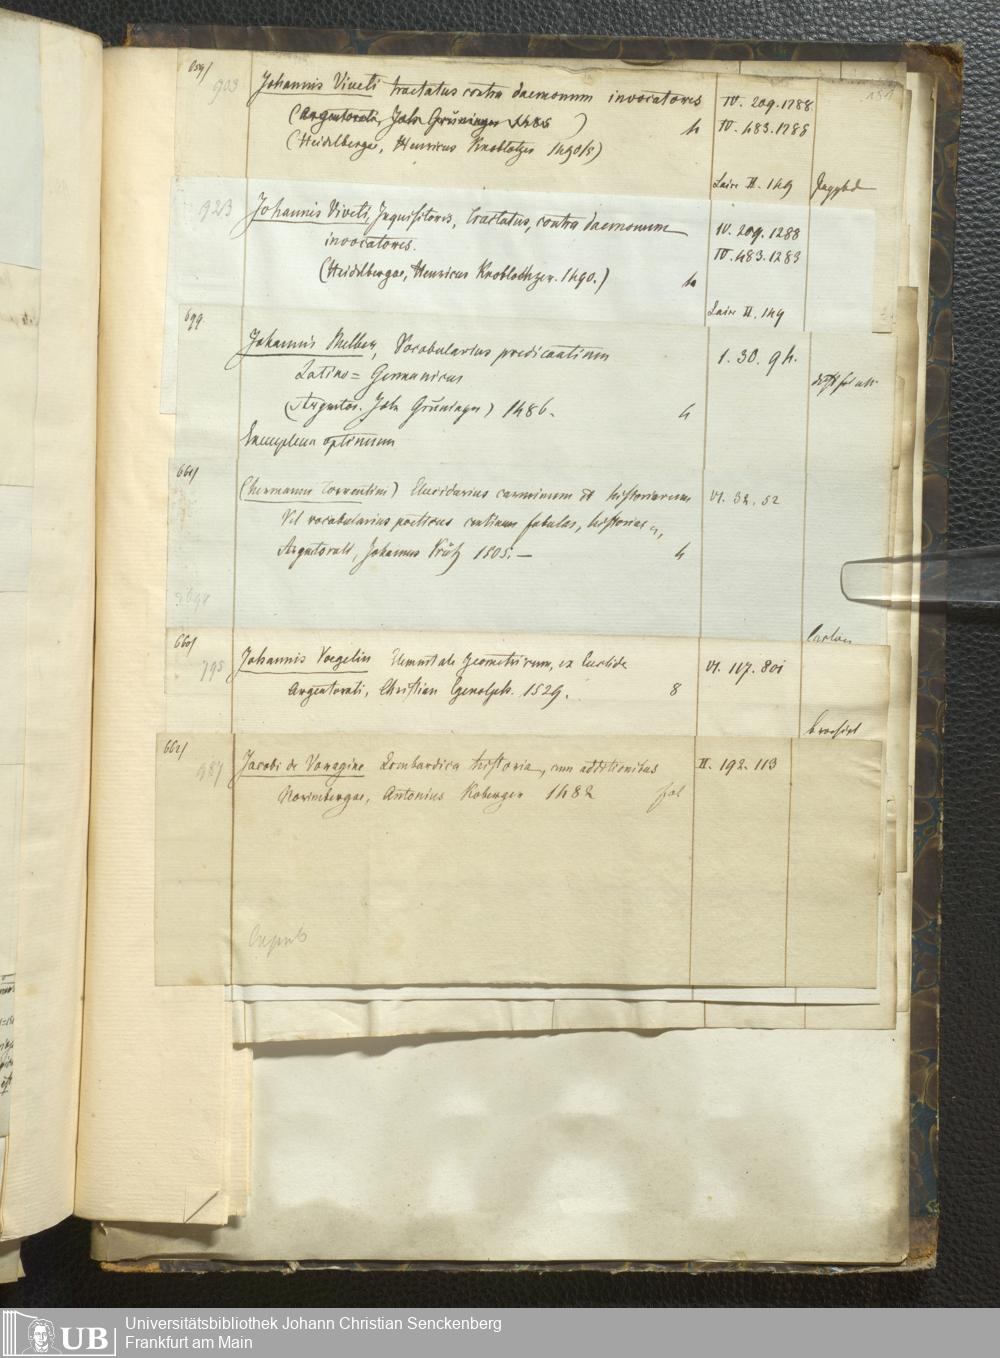 659/
903
Johannis Viveti tractatus contra daemonum invocatores IV. 209. 1288
(Argentorati, Joh. Grüninger 1486 ) 4 IV. 483. 1288
(Heidelbergae, Henricus Knoblotzer 1490/8)
Laire II. 149
923
Johannis Viveti, Inquisitoris, Tractatus, contra daemonum
invocatores. IV. 209. 1288
IV. 483. 1283
(Heidelbergae, Henricus Knoblochzer. 1490.) 4
Laire II. 149
699
Johannis Melber, Vocabularius predicantium 1. 30. 94.
Latino= Germanicus
(Argentor. Joh. Grüninger) 1486. 4
Exemplum optimum
661/
(Hermanni Torrentini) Elucidarius carminum et historiarum VI. 32. 52
Vel vocabularius poeticus continens fabulas, historias
Argentorati, Johannes Prüß 1505. — 4
660/
795
Johannis Voegelin Elementale geometricum, ex Euclide VI. 117. 801
Argentorati, Christian Egenolph. 1529. 8
662/
987
Jacobi de Voragine Lombardica historia, cum additionibus II. 192. 113
Norimbergae, Antonius Koberger 1482 fol
UB Universitätsbibliothek Johann Christian Senckenberg
Frankfurt am Main